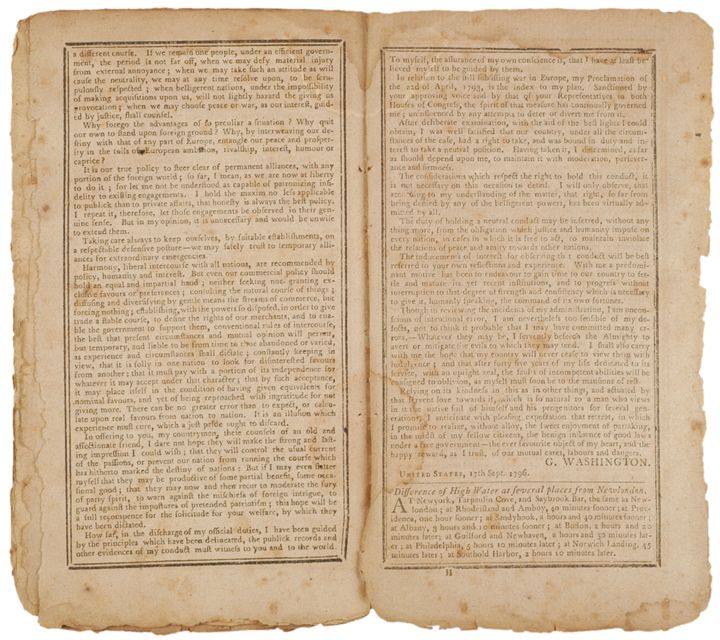 a different courſe. If we remain one people, under an efficient govern-
ment, the period is not far off, when we may defy material injury
from external annoyance; when we may take ſuch an attitude as will
cauſe the neutrality, we may at any time reſolve upon, to be ſcru-
pulouſly reſpected; when belligerent nations, under the impoſſibility
of making acquiſitions upon us, will not lightly hazard the giving us
provocation; when we may chooſe peace or war, as our intereſt, guid-
ed by juſtice, ſhall counſel.
Why forego the advantages of ſo peculiar a ſituation? Why quit
our own to ſtand upon foreign ground? Why, by interweaving our de-
ſtiny with that of any part of Europe, entangle our peace and proſper-
ity in the toils of European ambition, rivalſhip, intereſt, humour or
caprice?
It is our true policy to ſteer clear of permanent alliances, with any
portion of the foreign world; ſo far, I mean, as we are now at liberty
to do it; for let me not be underſtood as capable of patronizing infi-
delity to exiſting engagements. I hold the maxim no leſs applicable
to publick than to private affairs, that honeſty is always the beſt policy.
I repeat it, therefore, let thoſe engagements be obſerved in their gen-
uine ſenſe. But in my opinion, it is unneceſſary and would be unwiſe
to extend them.
Taking care always to keep ourſelves, by ſuitable eſtabliſhments, on
a reſpectable defenſive poſture—we may ſafely truſt to temporary alli-
ances for extraordinary emergencies.
Harmony, liberal intercourſe with all nations, are recommended by
policy, humanity and intereſt. But even our commercial policy ſhould
hold an equal and impartial hand; neither ſeeking nor granting ex-
cluſive favours or preferences; conſulting the natural courſe of things;
diffuſing and diverſifying by gentle means the ſtreams of commerce, but
forcing nothing; eſtabliſhing, with powers ſo diſpoſed, in order to give
trade a ſtable courſe, to define the rights of our merchants, and to ena-
ble the government to ſupport them, conventional rules of intercourſe,
the beſt that preſent circumſtances and mutual opinion will permit,
but temporary, and liable to be from time to time abandoned or varied,
as experience and circumſtances ſhall dictate; conſtantly keeping in
view, that it is folly in one nation to look for diſintereſted favours
from another; that it muſt pay with a portion of its independence for
whatever it may accept under that character; that by ſuch acceptance,
it may place itſelf in the condition of having given equivalents for
nominal favours, and yet of being reproached with ingratitude for not
giving more. There can be no greater error than to expect, or calcu-
late upon real favours from nation to nation. It is an illuſion which
experience muſt cure, which a juſt pride ought to diſcard.
In offering to you, my countrymen, theſe counſels of an old and
affectionate friend, I dare not hope they will make the ſtrong and laſt-
ing impreſſion I could wiſh; that they will control the uſual current
of the paſſions, or prevent our nation from running the courſe which
has hitherto marked the deſtiny of nations: But if I may even flatter
myſelf that they may be productive of ſome partial benefit, ſome occa-
ſional good; that they may now and then recur to moderate the fury
of party ſpirit, to warn againſt the miſchiefs of foreign intrigue, to
guard againſt the impoſtures of pretended patriotiſm; this hope will be
a full recompenſe for the ſolicitude for your welfare, by which they
have been dictated.
How far, in the diſcharge of my official duties, I have been guided
by the principles which have been delineated, the publick records and
other evidences of my conduct muſt witneſs to you and to the world.
To myſelf, the aſſurance of my own conſcience is, that I have at leaſt be-
lieved myſelf to be guided by them.
In relation to the ſtill ſubſiſting war in Europe, my Proclamation of
the 22d of April, 1793, is the index to my plan. Sanctioned by
your approving voice and by that of your Repreſentatives in both
Houſes of Congreſs, the ſpirit of that meaſure has continually governed
me; uninfluenced by any attempts to deter or divert me from it.
After deliberate examination, with the aid of the beſt lights I could
obtain, I was well ſatisfied that our country, under all the circum-
ſtances of the caſe, had a right to take, and was bound in duty and in-
tereſt to take a neutral poſition. Having taken it, I determined, as far
as ſhould depend upon me, to maintain it with moderation, perſever-
ance and firmneſs.
The conſiderations which reſpect the right to hold this conduct, it
is not neceſſary on this occaſion to detail. I will only obſerve, that
according to my underſtanding of the matter, that right, ſo far from
being denied by any of the belligerent powers, has been virtually ad-
mitted by all.
The duty of holding a neutral conduct may be inferred, without any
thing more, from the obligation which juſtice and humanity impoſe on
every nation, in caſes in which it is free to act, to maintain inviolate
the relations of peace and amity towards other nations.
The inducements of intereſt for obſerving that conduct will be beſt
referred to your own reflections and experience. With me a predomi-
nant motive has been to endeavour to gain time to our country to ſet-
tle and mature its yet recent inſtitutions, and to progreſs without
interruption to that degree of ſtrength and conſiſtency which is neceſſary
to give it, humanly ſpeaking, the command of its own fortunes.
Though in reviewing the incidents of my adminiſtration, I am uncon-
ſcious of intentional error, I am nevertheleſs too ſenſible of my de-
fects, not to think it probable that I may have committed many er-
rors,—Whatever they may be, I fervently beſeech the Almighty to
avert or mitigate the evils to which they may tend. I ſhall alſo carry
with me the hope that my country will never ceaſe to view them with
indulgence; and that after forty five years of my life dedicated to its
ſervice, with an upright zeal, the faults of incompetent abilities will be
conſigned to oblivion, as myſelf muſt ſoon be to the manſions of reſt.
Relying on its kindneſs in this as in other things, and actuated by
that fervent love towards it, which is ſo natural to a man who views
in it the native ſoil of himſelf and his progenitors for ſeveral gen-
erations; I anticipate with pleaſing expectation that retreat, in which
I promiſe to realize, without alloy, the ſweet enjoyment of partaking,
in the midſt of my fellow citizens, the benign influence of good laws
under a free government—the ever favourite object of my heart, and the
happy reward, as I truſt, of our mutual cares, labours and dangers.
G. WASHINGTON.
UNITED STATES, 17th Sept. 1796.
Difference of High Water at ſeveral places from Newlondon.
AT Newyork, Tarpaulin Cove, and Saybrook Bar, the ſame as New-
london; at Rhodeiſland and Amboy, 40 minutes ſooner; at Pro-
vidence, one hour ſooner; at Sandyhook, 2 hours and 40 minutes ſooner;
at Albany, 9 hours and 10 minutes later; at Boſton, 2 hours and 20
minutes later; at Guilford and Newhaven, 2 hours and 50 minutes lat-
er; at Philadelphia, 5 hours 10 minutes later; at Norwich Landing, 45
minutes later; at Southold Harbor, 2 hours 10 minutes later.
H